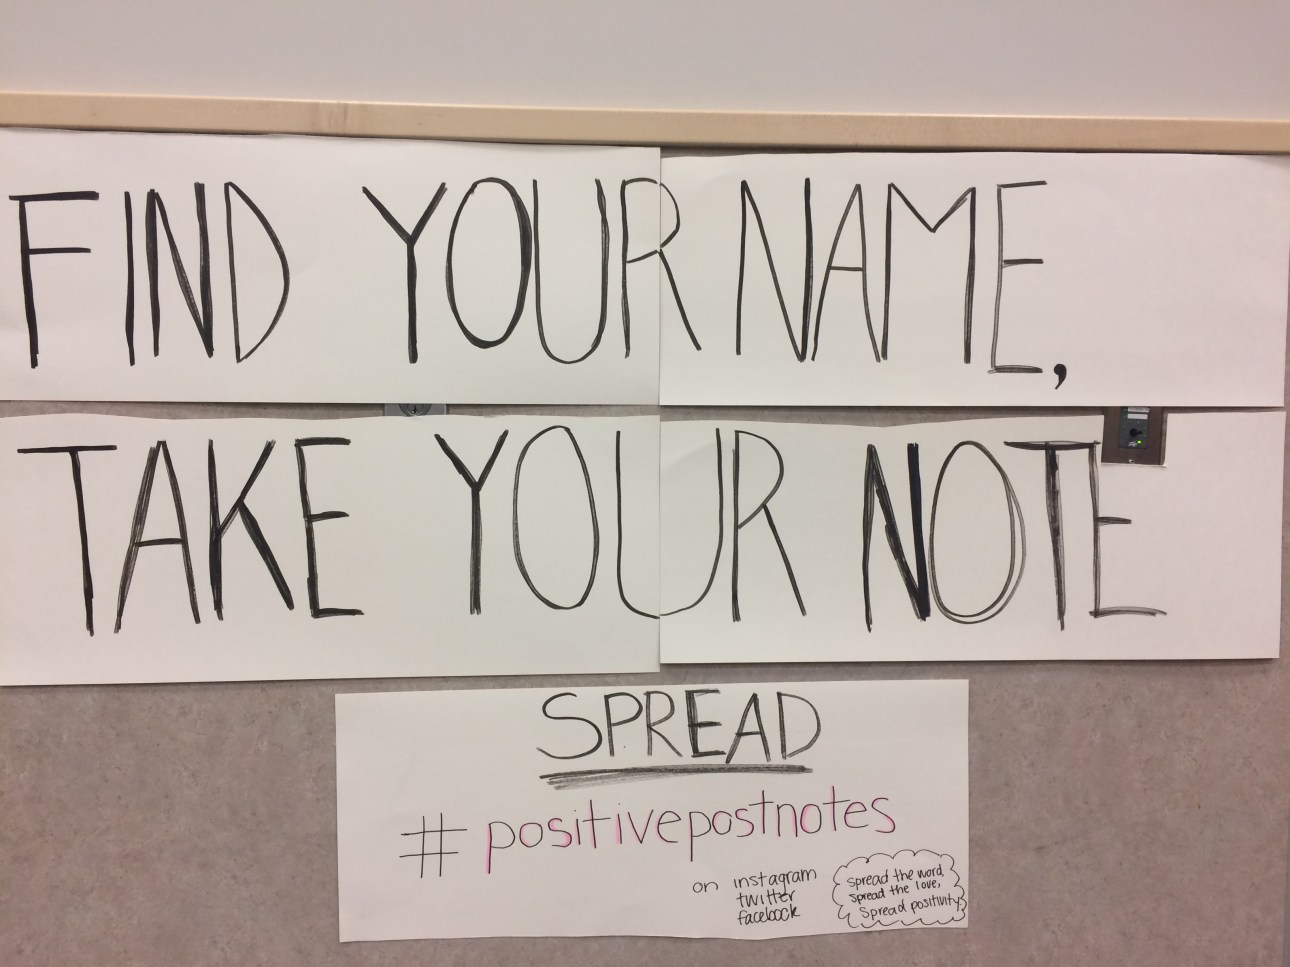 FIND YOUR NAME,
TAKE YOUR NOTE
SPREAD
#positivepostnotes
on instagram
twitter
facebook
Spread the word,
Spread the love,
Spread positivity